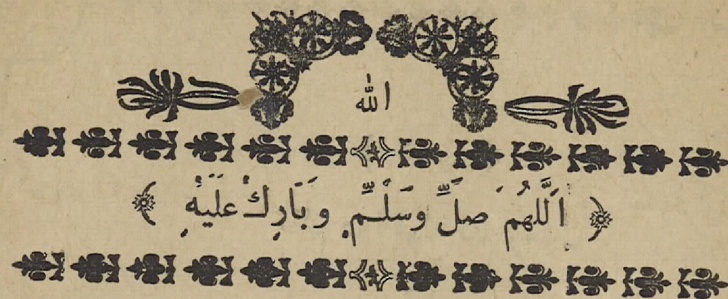 الله
﴿ اَللّٰهُمَّ صَلِّ وَسَلِّمْ وَبَارِكْ عَلَيْهِ ﴾